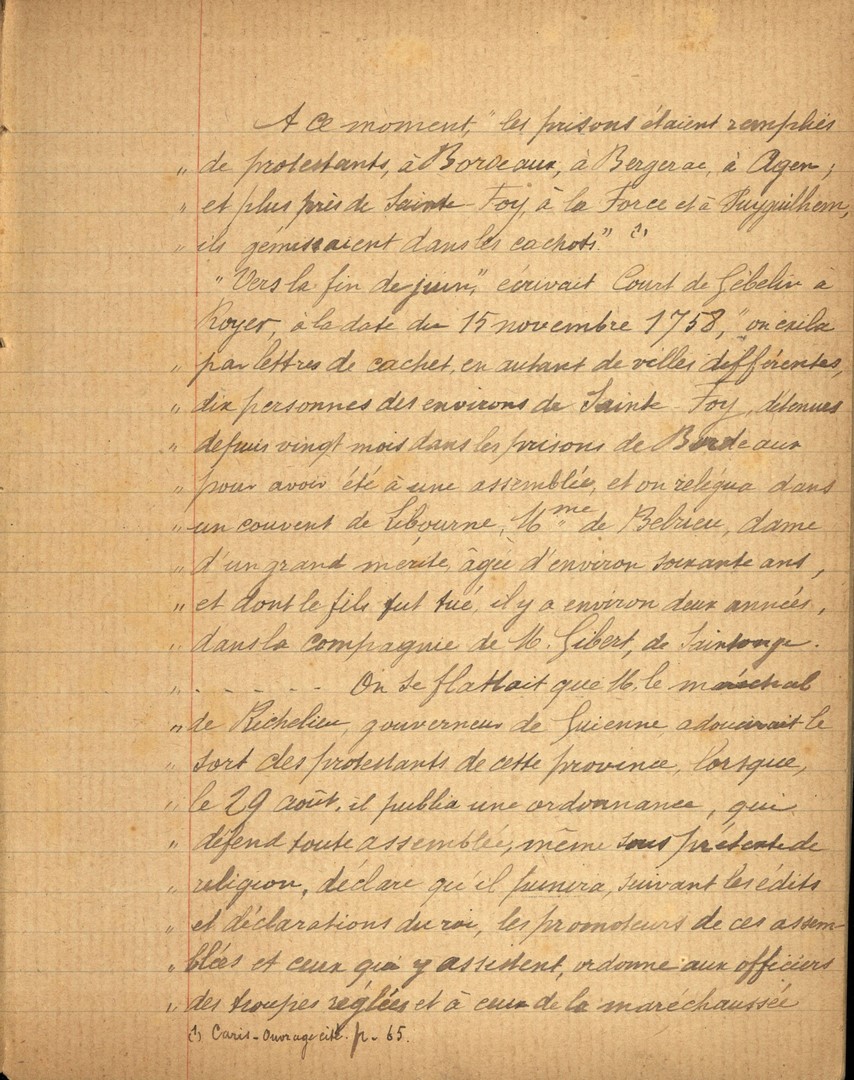 A ce moment, " les prisons étaient remplies
" de protestants, à Bordeaux, à Bergerac, à Agen ;
" et plus près de Sainte-Foy, à la Force et à Puyguilhem,
" ils gémissaient dans les cachots." (1)
" Vers la fin de juin," écrivait Court de Gébelin à
Royer, à la date du 15 novembre 1758, " on exila
" par lettres de cachet, en autant de villes différentes,
" dix personnes des environs de Sainte-Foy, détenues
" depuis vingt mois dans les prisons de Bordeaux
" pour avoir été à une assemblée, et on relégua dans
" un couvent de Libourne, Mme de Belrieu, dame
" d'un grand mérite, âgée d'environ soixante ans,
" et dont le fils fut tué, il y a environ deux années,
" dans la compagnie de M. Gibert, de Saintonge.
" . - . - - - - On se flattait que M. le maréchal
" de Richelieu, gouverneur de Guienne, adoucirait le
" sort des protestants de cette province, lorsque,
" le 29 août, il publia une ordonnance, qui
" défend toute assemblée, même sous prétexte de
" religion, déclare qu'il punira, suivant les édits
" et déclarations du roi, les promoteurs de ces assem-
" blées et ceux qui y assistent, ordonne aux officiers
" des troupes réglées et à ceux de la maréchaussée
(1) Caris - Ouvrage cité. p. 65.